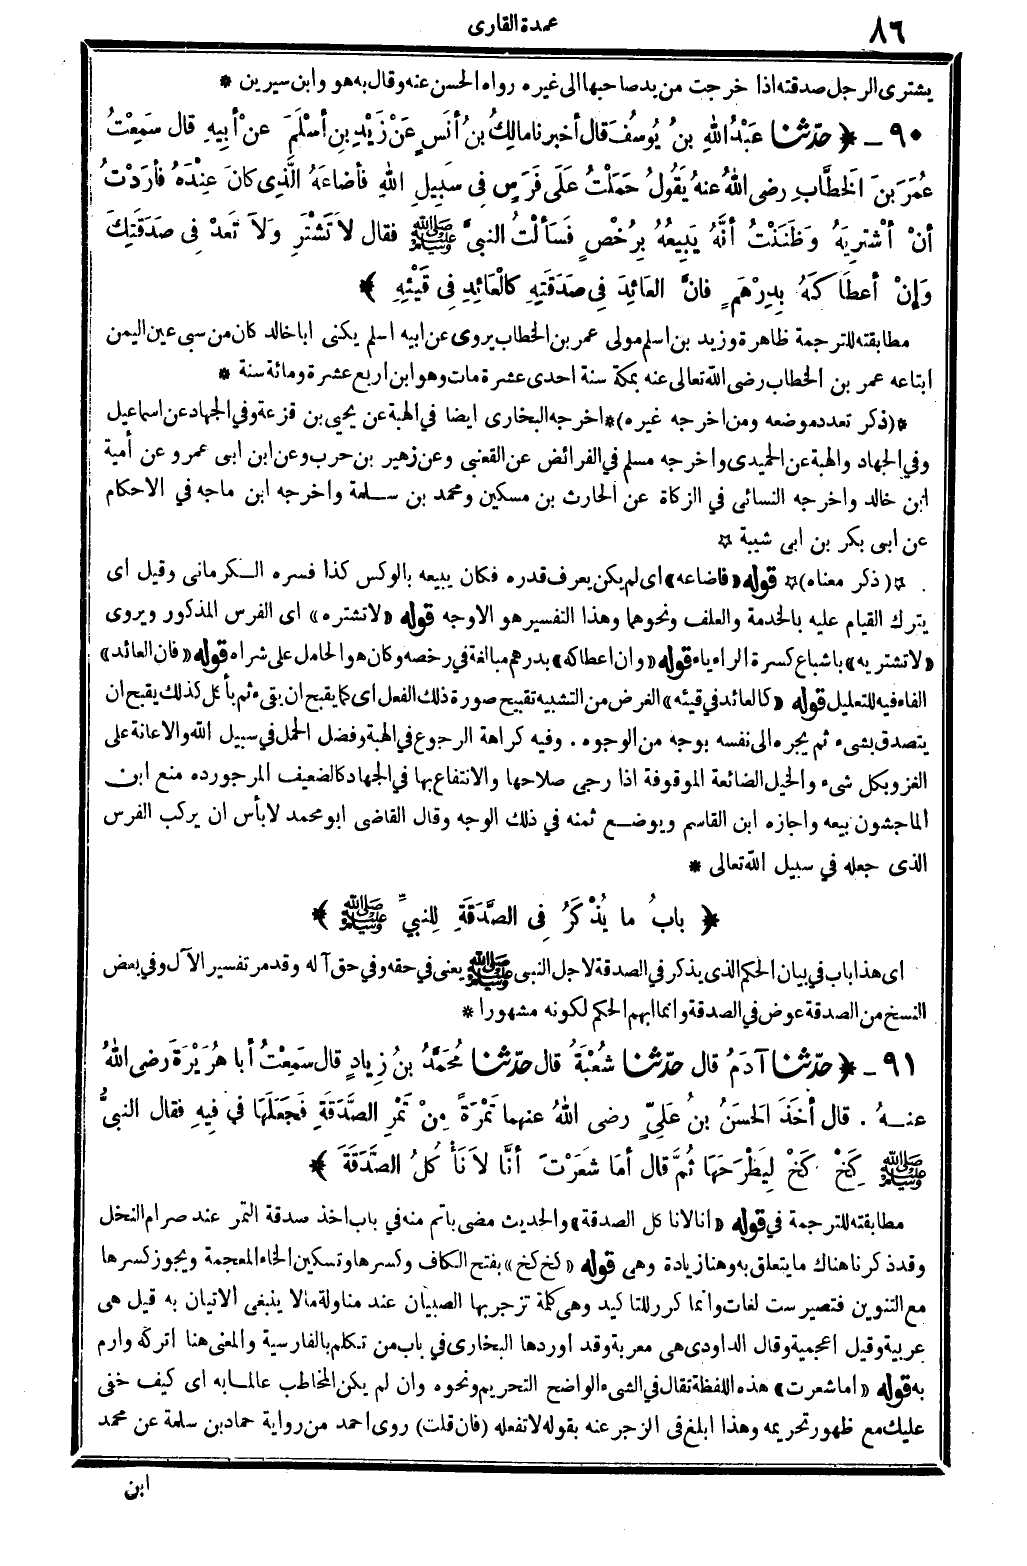 ٨٦
عمدة القارى
يشترى الرجل صدقته اذا خرجت من يد صاحبها الى غيره رواه الحسن عنه وقال به هو وابن سيرين *
٩٠ ـ ﴿ حَدَّثَنَا عَبْدُ اللهِ بنُ يُوسُفَ قال أخبرنا مالِكُ بنُ أنَسٍ عَنْ زَيْدِ بنِ أسْلَمَ عَنْ أبِيهِ قال سَمِعْتُ
عُمَرَ بنَ الخَطَّابِ رضى اللهُ عنهُ يَقُولُ حَمَلْتُ عَلَى فَرَسٍ فِى سَبِيلِ اللهِ فأضاعَهُ الَّذِى كانَ عِنْدَهُ فأرَدْتُ
أنْ أشْتَرِيَهُ وَظَنَنْتُ أنَّهُ يَبِيعُهُ بِرُخْصٍ فَسَألْتُ النبىَّ ﷺ فقال لاَ تَشْتَرِ وَلاَ تَعدْ فِى صَدَقَتِكَ
وَإِنْ أعطَاكَهُ بِدِرْهَمٍ فانَّ العَائِدَ فِى صَدَقَتِهِ كالْعَائِدِ فِى قَيْئِهِ ﴾
مطابقته للترجمة ظاهرة وزيد بن اسلم مولى عمر بن الخطاب يروى عن ابيه اسلم يكنى ابا خالد كان من سبى عين اليمن
ابتاعه عمر بن الخطاب رضى الله تعالى عنه بمكة سنة احدى عشرة مات وهو ابن اربع عشرة ومائة سنة *
*(ذكر تعدد موضعه ومن اخرجه غيره)* اخرجه البخارى ايضا فى الهبة عن يحيى بن قزعة وفى الجهاد عن اسماعيل
وفى الجهاد والهبة عن الحميدى واخرجه مسلم فى الفرائض عن القعنبى وعن زهير بن حرب وعن ابن ابى عمرو عن أمية
ابن خالد واخرجه النسائى فى الزكاة عن الحارث بن مسكين ومحمد بن سلمة واخرجه ابن ماجه فى الاحكام
عن ابى بكر بن ابى شيبة ☆
☆(ذكر معناه)☆ قوله «فاضاعه» اى لم يكن يعرف قدره فكان يبيعه بالوكس كذا فسره الكرمانى وقيل اى
يترك القيام عليه بالخدمة والعلف ونحوهما وهذا التفسير هو الاوجه قوله «لاتشتره» اى الفرس المذكور ويروى
«لاتشتريه» باشباع كسرة الراء ياء قوله «وان اعطاكه» بدرهم مبالغة فى رخصه وكان هو الحامل على شراه قوله «فان العائد»
الفاء فيه للتعليل قوله «كالعائد فى قيئه» الغرض من التشبيه تقبيح صورة ذلك الفعل اى كما يقبح ان يقىء ثم يأكل كذلك يقبح ان
يتصدق بشىء ثم يجره الى نفسه بوجه من الوجوه . وفيه كراهة الرجوع فى الهبة وفضل الحمل فى سبيل الله والاعانة على
الغزو بكل شىء والخيل الضائعة الموقوفة اذا رجى صلاحها والانتفاع بها فى الجهاد كالضعيف المرجو رده منع ابن
الماجشون بيعه واجازه ابن القاسم ويوضع ثمنه فى ذلك الوجه وقال القاضى ابو محمد لابأس ان يركب الفرس
الذى جعله فى سبيل الله تعالى *
﴿ بابُ ما يُذْكَرُ فِى الصَّدَقَةِ لِلنبيِّ ﷺ ﴾
اى هذا باب فى بيان الحكم الذى يذكر فى الصدقة لاجل النبى ﷺ يعنى فى حقه وفى حق آله وقد مر تفسير الآل وفى بعض
النسخ من الصدقة عوض فى الصدقة وانما ابهم الحكم لكونه مشهورا *
٩١ ـ ﴿ حَدَّثَنَا آدَمُ قال حَدَّثَنَا شُعْبَةُ قال حَدَّثَنَا مُحَمَّدُ بنُ زِيادٍ قال سَمِعْتُ أبا هُرَيْرَةَ رضى اللهُ
عنهُ . قال أخَذَ الحَسَنُ بنُ عَلِىٍّ رضى اللهُ عنهما تَمْرَةً مِنْ تَمْرِ الصَّدَقَةِ فَجَعَلَهَا فِى فِيهِ فقال النبىُّ
ﷺ كِخْ كَخْ لِيَطْرَحَهَا ثُمَّ قال أمَا شَعَرْتَ أنَّا لاَ نَأْكُلُ الصَّدَقَةَ ﴾
مطابقته للترجمة فى قوله «انا لانا كل الصدقة» والحديث مضى باتم منه فى باب اخذ صدقة التمر عند صرام النخل
وقد ذكرنا هناك ما يتعلق به وهنا زيادة وهى قوله «كخ كخ» بفتح الكاف وكسرها وتسكين الخاء المعجمة ويجوز كسرها
مع التنوين فتصير ست لغات وانما كرر للتاكيد وهى كلمة تزجر بها الصبيان عند مناولة مالا ينبغى الاتيان به قيل هى
عربية وقيل اعجمية وقال الداودى هى معربة وقد اوردها البخارى فى باب من تكلم بالفارسية والمعنى هنا اتركه وارم
به قوله «اما شعرت» هذه اللفظة تقال فى الشىء الواضح التحريم ونحوه وان لم يكن المخاطب عالما به اى كيف خفى
عليك مع ظهور تحريمه وهذا ابلغ فى الزجر عنه بقوله لاتفعله (فان قلت) روى احمد من رواية حماد بن سلمة عن محمد
ابن